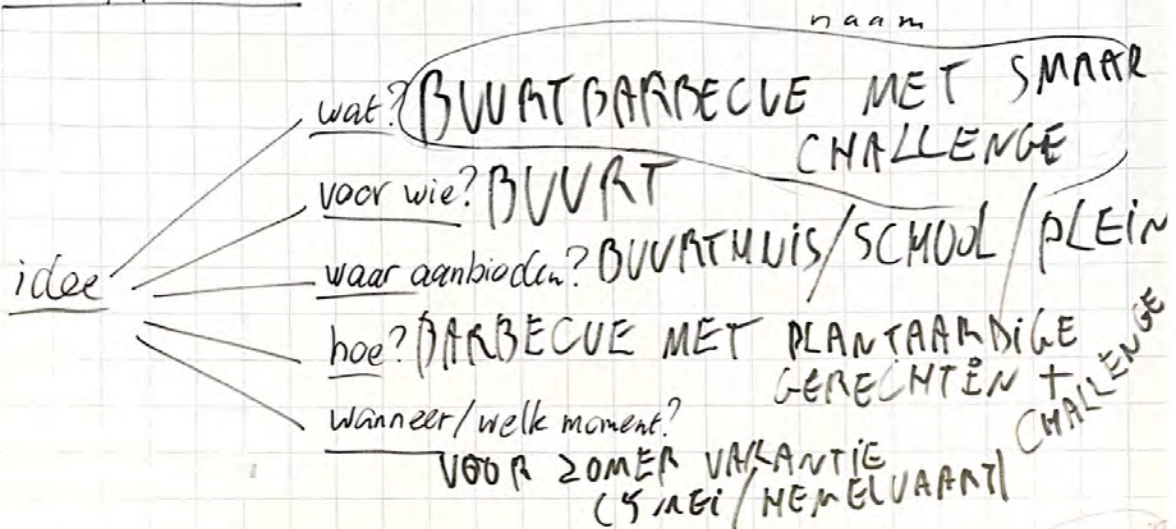 naam
wat? BUURTBARBECUE MET SMAAK
CHALLENGE
voor wie? BUURT
idee
waar aanbieden? BUURTHUIS/SCHOOL/PLEIN
hoe? BARBECUE MET PLANTAARDIGE
GERECHTEN +
CHALLENGE
wanneer/welk moment?
VOOR ZOMER VAKANTIE
(5 MEI/HEMELVAART)